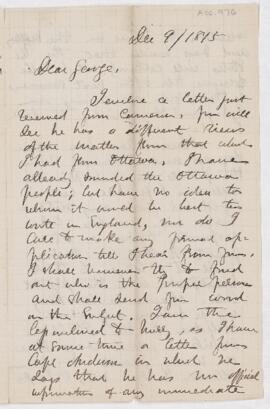 Acc. 976
Dec 9/1875
Dear George,
I enclose a letter just
received from Cameron, you will
see he has a different view
of the matter from that which
I had from Ottawa, I have
already sounded the Ottawa
people; but have no idea to
whom it would be best to
write in England, nor do I
care to make any formal ap-
plication till I hear from you.
I shall however try to find
out who is the proper person
and shall send you word
on the subject. I am the
inclined to, as I have
at same time a letter from
Capt in which he
says that he has no official
information of any immediate